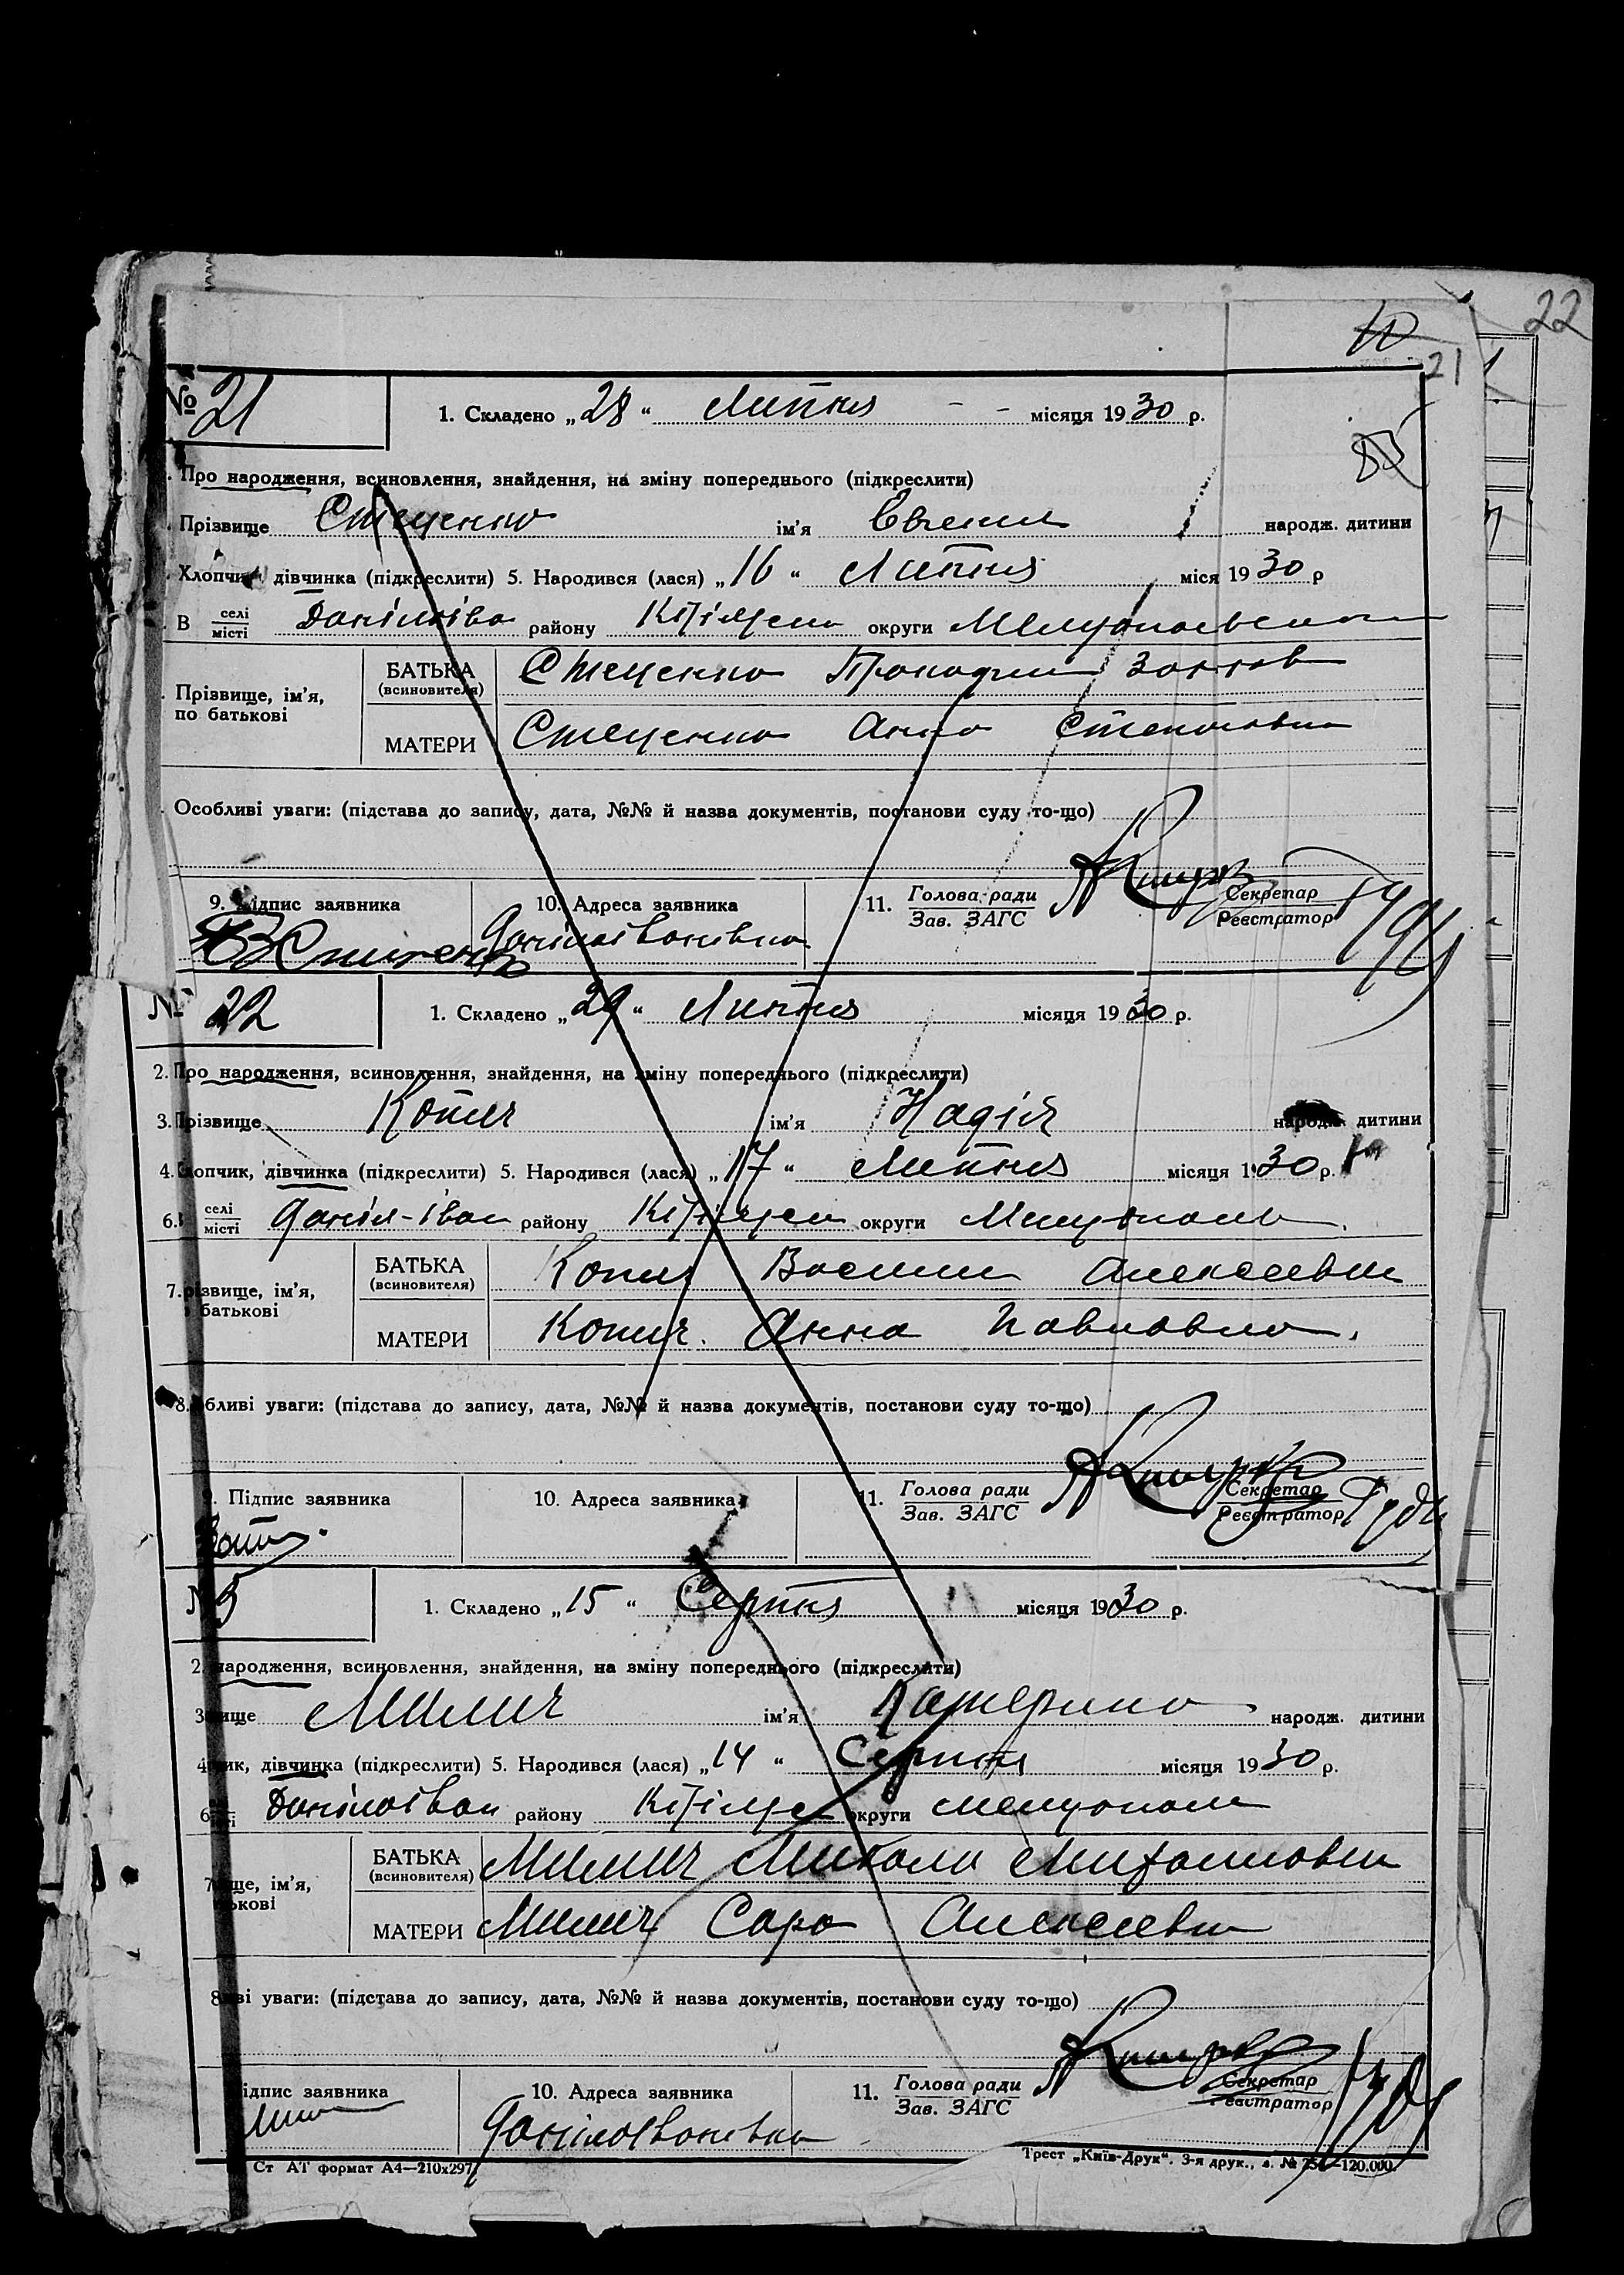 22
10
21
83
№ 21
1. Складено „28“ Липня - - місяця 1930 р.
Про народження, всиновлення, знайдення, на зміну попереднього (підкреслити)
Прізвище Стеценко ім'я Євгения народж. дитини
Хлопчик, дівчинка (підкреслити) 5. Народився (лася) „16“ Липня міся 1930 р
В селі місті Данілоіва району Кізіяреи округи Мелитопольско
Прізвище, ім'я, по батькові
БАТЬКА (всиновителя) Стеценко Прокофии
МАТЕРИ Стеценко Анна Степановна
Особливі уваги: (підстава до запису, дата, №№ й назва документів, постанови суду то-що)
9. Підпис заявника 10. Адреса заявника 11. Голова ради Зав. ЗАГС Секретар Реєстратор
Данілоіванівка
№ 22
1. Складено „29“ Липня місяця 1930 р.
2. Про народження, всиновлення, знайдення, на зміну попереднього (підкреслити)
3. Прізвище Копич ім'я Надія народж. дитини
4. Хлопчик, дівчинка (підкреслити) 5. Народився (лася) „17“ Липня місяця 1930 р.
6. селі місті Даніл-іван району округи Мелитополь
7. різвище, ім'я, батькові
БАТЬКА (всиновителя) Копич Василий Алексеевич
МАТЕРИ Копич. Анна Павловна.
8. бливі уваги: (підстава до запису, дата, №№ й назва документів, постанови суду то-що)
9. Підпис заявника 10. Адреса заявника 11. Голова ради Зав. ЗАГС Секретар Реєстратор
1. Складено „15“ Серпня місяця 1930 р.
2. народження, всиновлення, знайдення, на зміну попереднього (підкреслити)
3 вище Милич ім'я Катерина народж. дитини
4 чик, дівчинка (підкреслити) 5. Народився (лася) „14“ Серпня місяця 1930 р.
6 Данілоіван району округи Мелитополь
7 ще, ім'я, ькові
БАТЬКА (всиновителя) Милич Микола Михаилович
МАТЕРИ Милич Сара Алексеевн
8 ві уваги: (підстава до запису, дата, №№ й назва документів, постанови суду то-що)
ідпис заявника 10. Адреса заявника 11. Голова ради Зав. ЗАГС Секретар Реєстратор
Данілоіванівка
Ст АТ формат А4—210х297
Трест „Київ-Друк“. 3-я друк., 120.000.